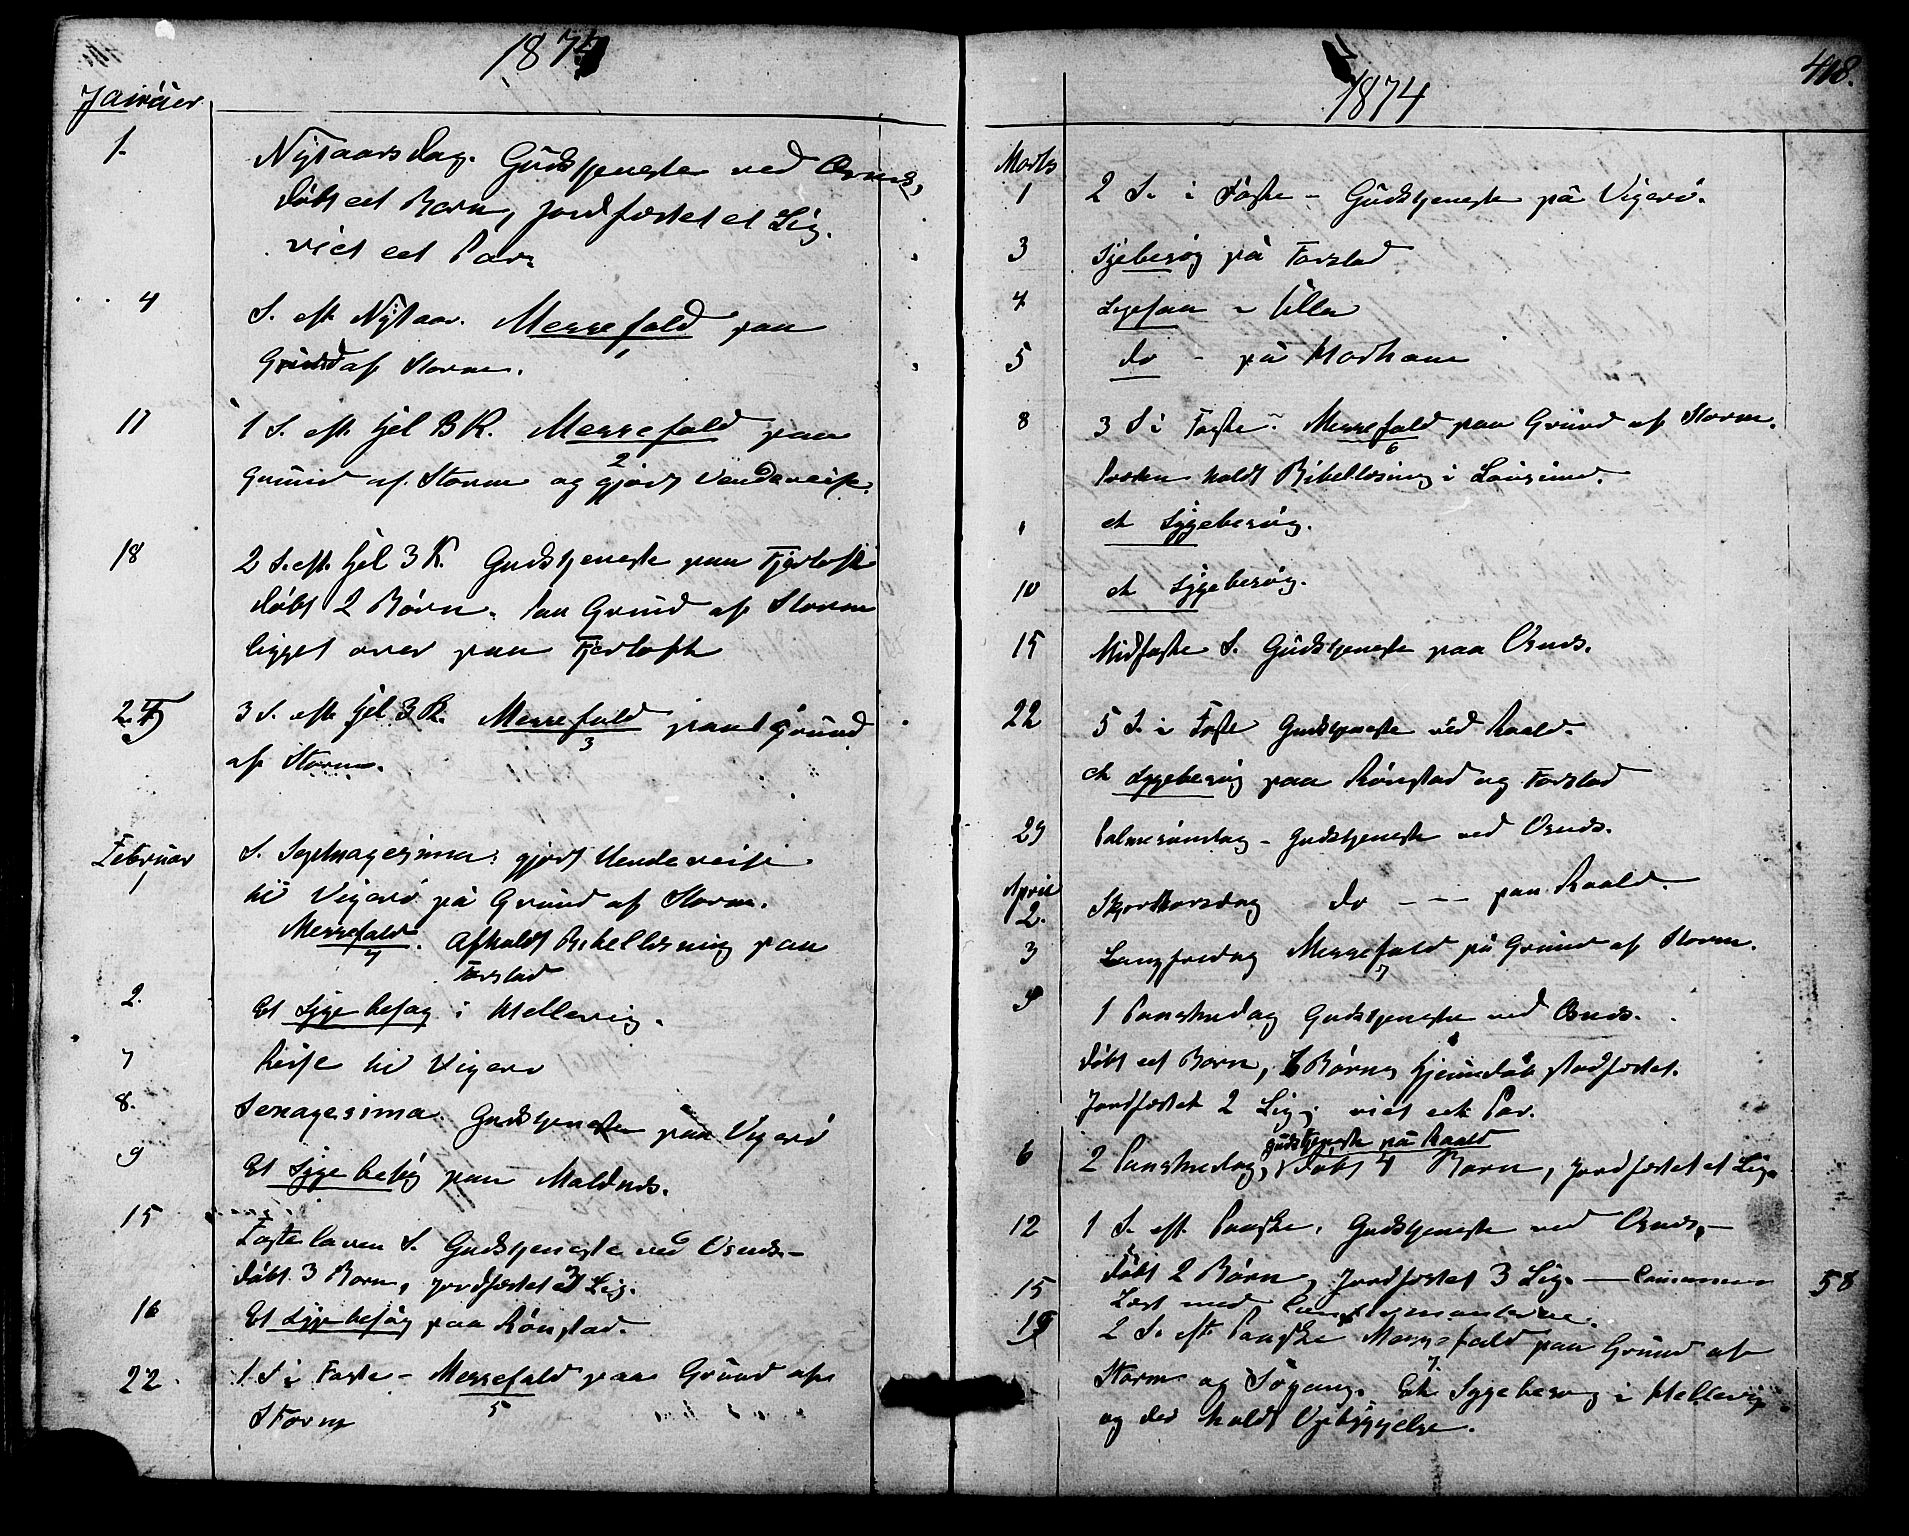 1874
Januar
1. Nytaarsdag. Gudstjeneste ved Osnes,
døbt eet Barn, jordfæstet et Lig.
viet eet Par.
4 S. eft Nytaar. Messefald paa
1
Grund af Storm.
11 1 S. eft. hjel 3 K. Messefald paa
2
Grund af Storm og gjort Vendereise.
18 2 S. eft. hjel 3 K. Gudstjeneste paa Fjærtoft
døbt 2 Børn. Paa Grund af Storm
ligget over paa Fjærtoft
25 3 S. eft. hjel 3 K. Messefald paa Grund
3
af Storm.
Februar
1 S. Septuagesima. gjort Vendereise
til Vigerø på Grund af Storm.
Messefald. Afholdt Bibellæsning paa
4
Farstad
2. Et Sygebesøg i Mellevig.
7 Reise til Vigerø
8. Sexagesima Gudstjeneste paa Vigerø
9 Et Sygebesøg paa Maldnes.
15 Fastelaven S. Gudstjeneste ved Osnes
døbt 3 Børn, jordfæstet 3 Lig.
16 Et Sygebesøg paa Rønstad.
22 1 S i Faste – Messefald paa Grund af
5
Storm
418.
1874
Marts
1 2 S. i Faste – Gudstjeneste på Vigerø.
3 Sygebesøg på Farstad
4 Ligefaa – Ulla
5 do – på Morhavn
8 3 S i Faste – Messefald paa Grund af Storm.
6
Præsten holdt Bibellæsning i
et Sygebesøg.
10 et Sygebesøg.
15 Midfaste S. Gudstjeneste paa Osnes.
22 5 S. i Faste Gudstjeneste ved Roald.
et Sygebesøg paa Rønstad og Farstad
29 Palmesøndag – Gudstjeneste ved Osnes.
April
2. Skjærthorsdag do – – – paa Roald.
3 Langfredag Messefald på Grund af Storm.
7
5 1 Paaskedag Gudstjeneste ved Osnes.
døbt eet Barn, Børns Hjemmedåb stadfæstet.
Jordfæstet 2 Lig; viet eet Par.
gudstjeneste på Roald
6 2 Paaskedag, døbt 4 Børn, jordfæstet et Lig
12 1 S. eft. Paaske. Gudstjeneste ved Osnes, –
døbt 2 Børn, Jordfæstet 3 Lig. – 58
15 Læst med Confirmanterne.
19 2 S. eft. Paaske Messefald paa Grund af
7.
Storm og Søgang. Et Sygebesøg i Mellevig
og der holdt Opbyggelse.